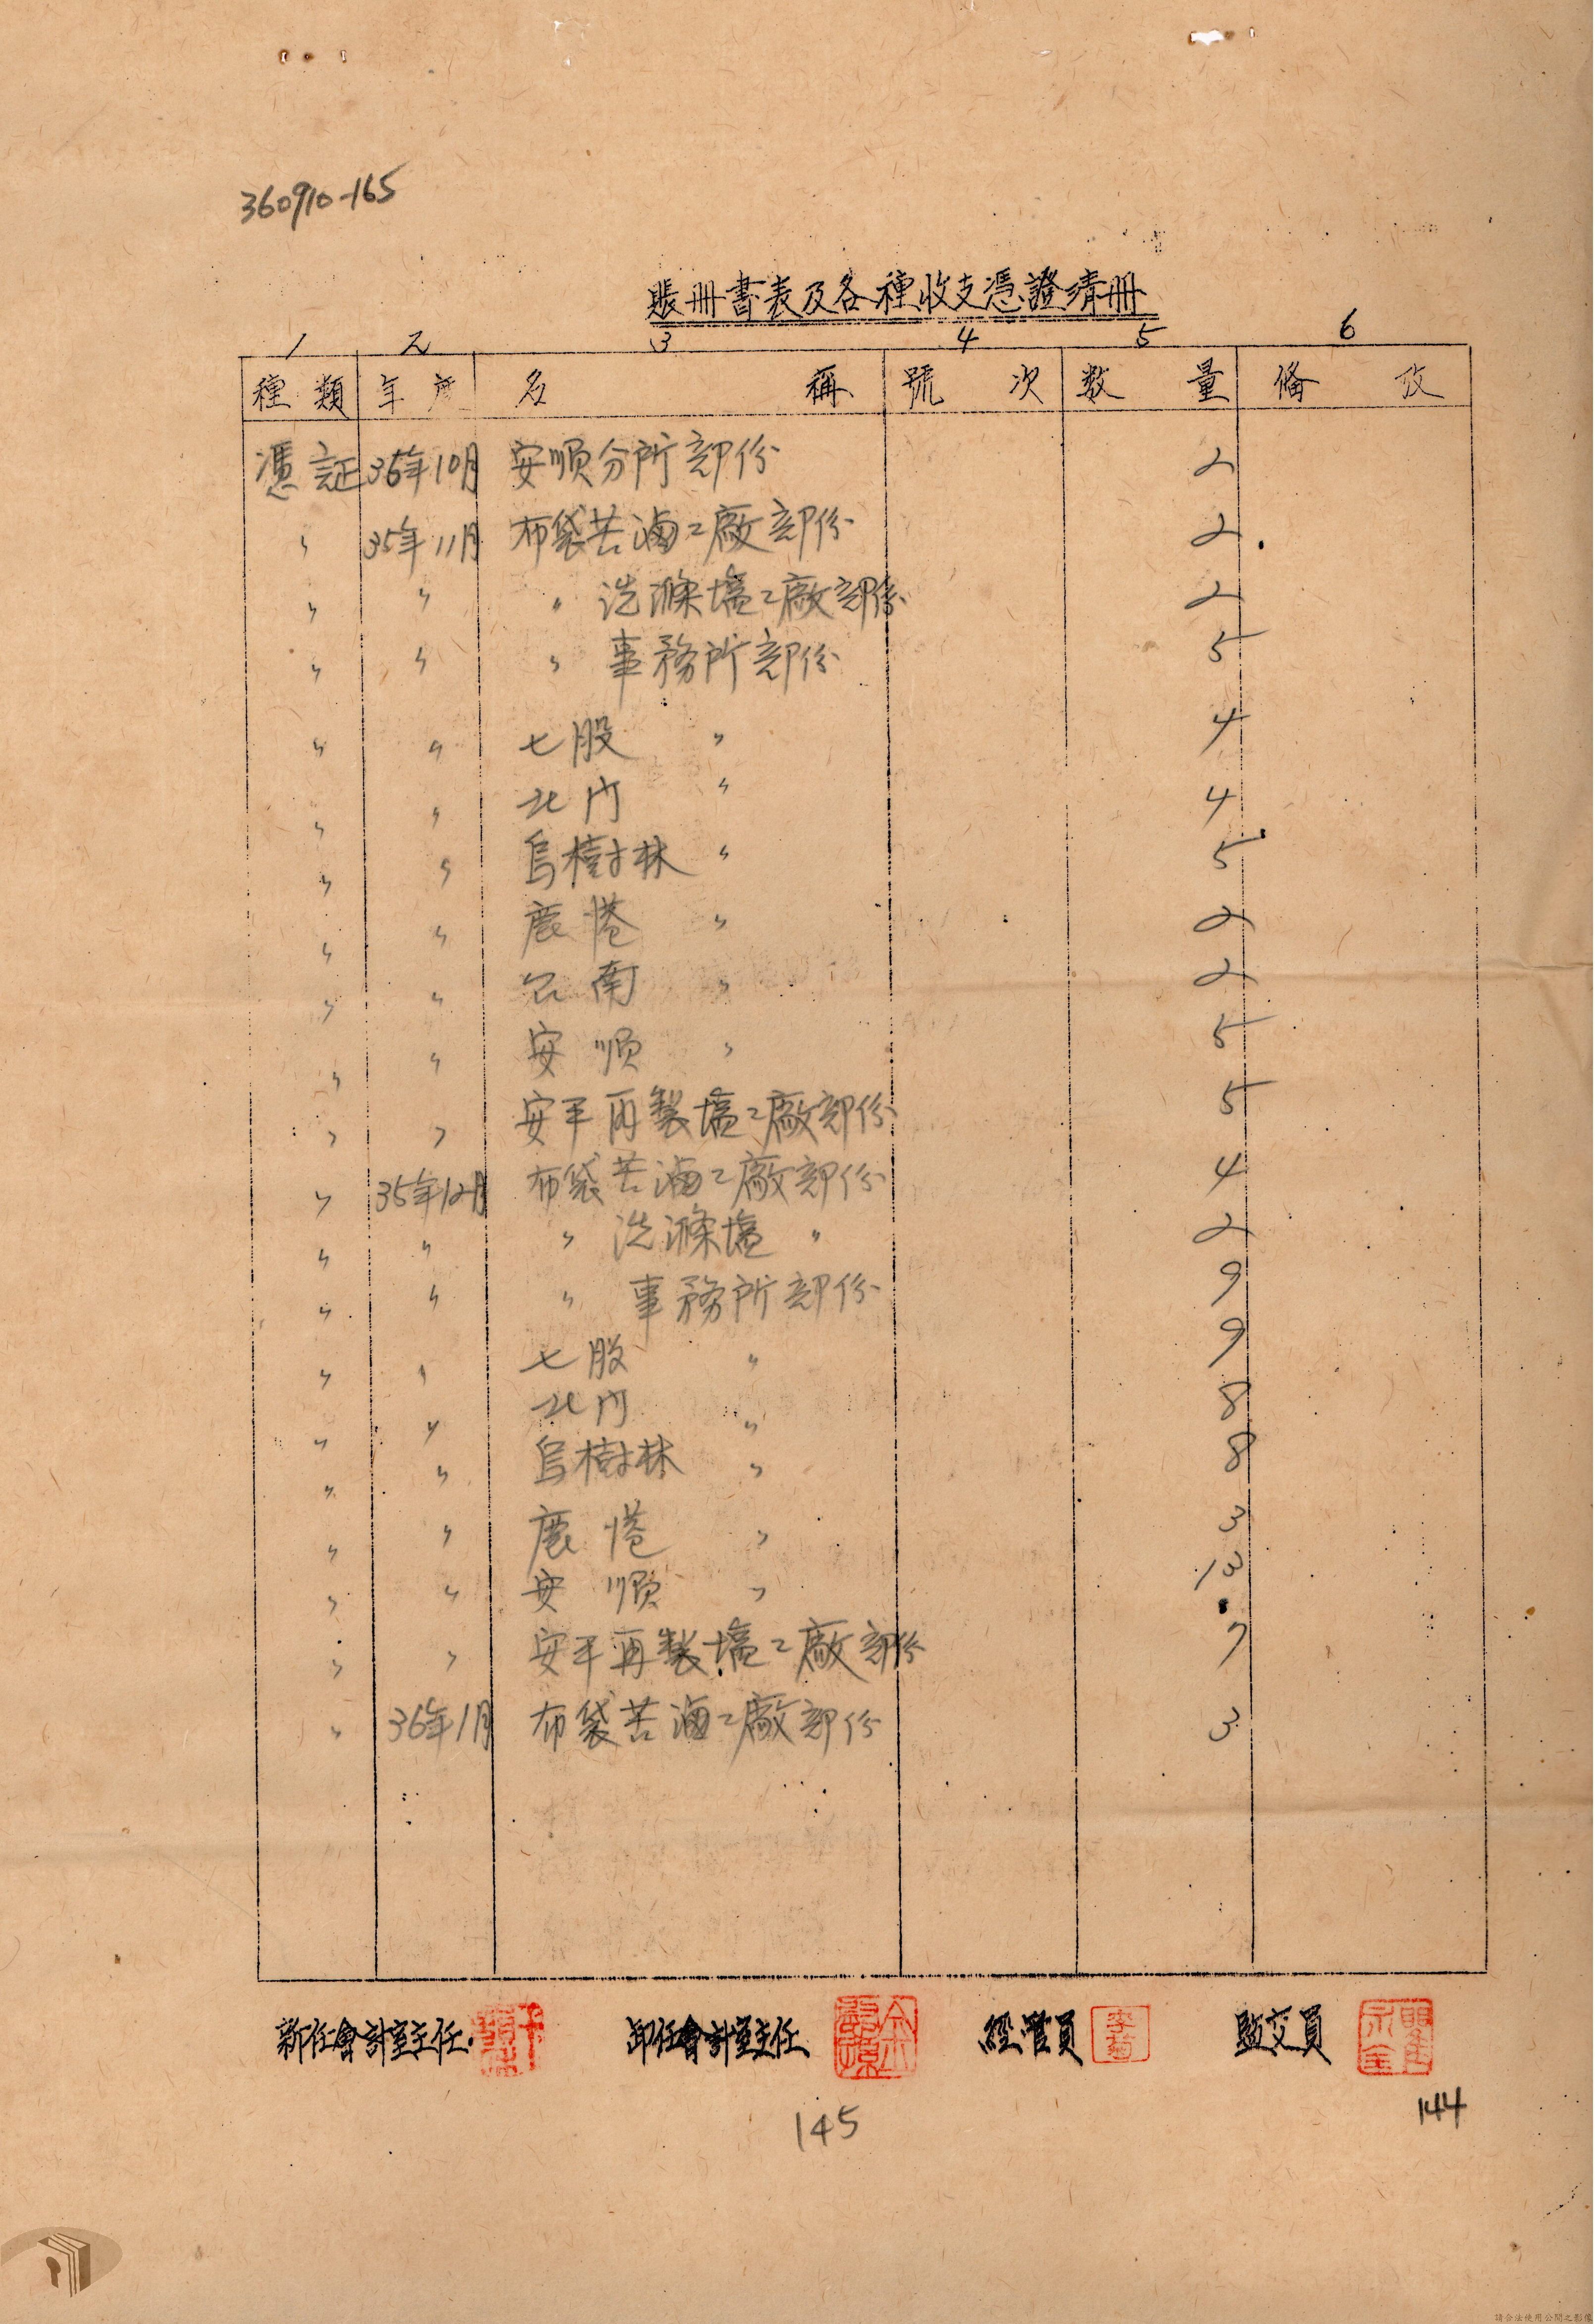 360910-165
賬冊書表及各種收支憑證清冊
1 2 3 4 5 6
種類 年度 名稱 號次 数量 俻攷
憑証 35年10月 安順分所部份 2
〃 35年11月 布袋苦滷工廠部份 2
〃 〃 〃 洗滌塩工廠部份 2
〃 〃 〃 事務所部份 5
〃 〃 七股 〃 4
〃 〃 北门 〃 4
〃 〃 烏樹林 〃 5
〃 〃 鹿港 〃 2
〃 〃 台南 〃 2
〃 〃 安順 〃 5
〃 〃 安平再製塩工廠部份 5
〃 35年12月 布袋苦滷工廠部份 4
〃 〃 〃 洗滌塩 〃 2
〃 〃 〃 事務所部份 9
〃 〃 七股 〃 9
〃 〃 北门 〃 8
〃 〃 烏樹林 〃 8
〃 〃 鹿港 〃 3
〃 〃 安順 〃 13
〃 〃 安平再製塩工廠部份 7
〃 36年1月 布袋苦滷工廠部份 3
新任會計室主任 卸任會計室主任 經管員 李菊 監交員
145
144
請合法使用公開之影像